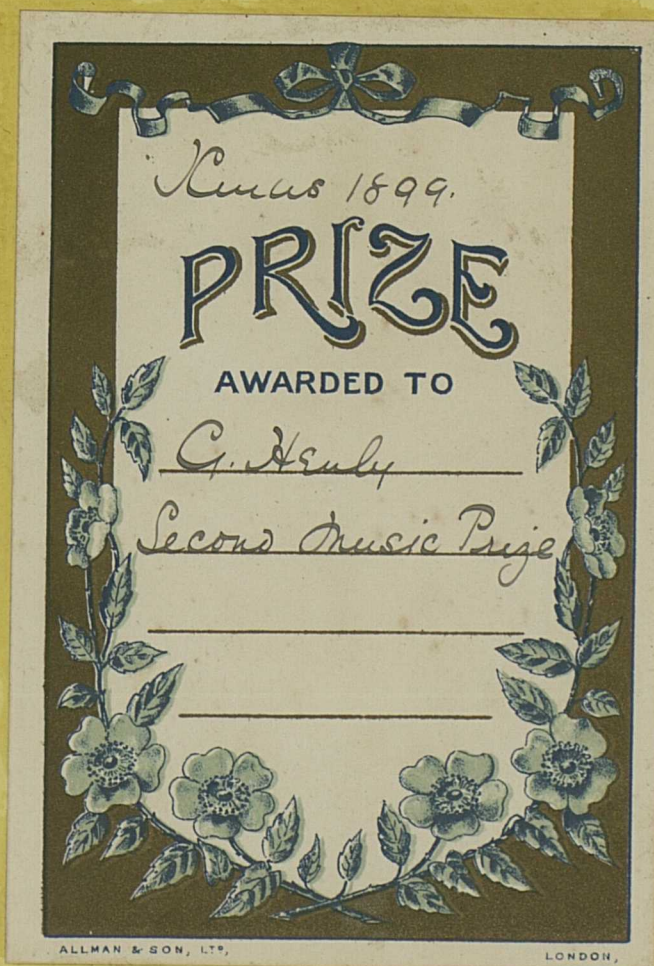 Xmas 1899.
PRIZE
AWARDED TO
G. Henly
Second Music Prize
ALLMAN & SON, LTD,
LONDON,